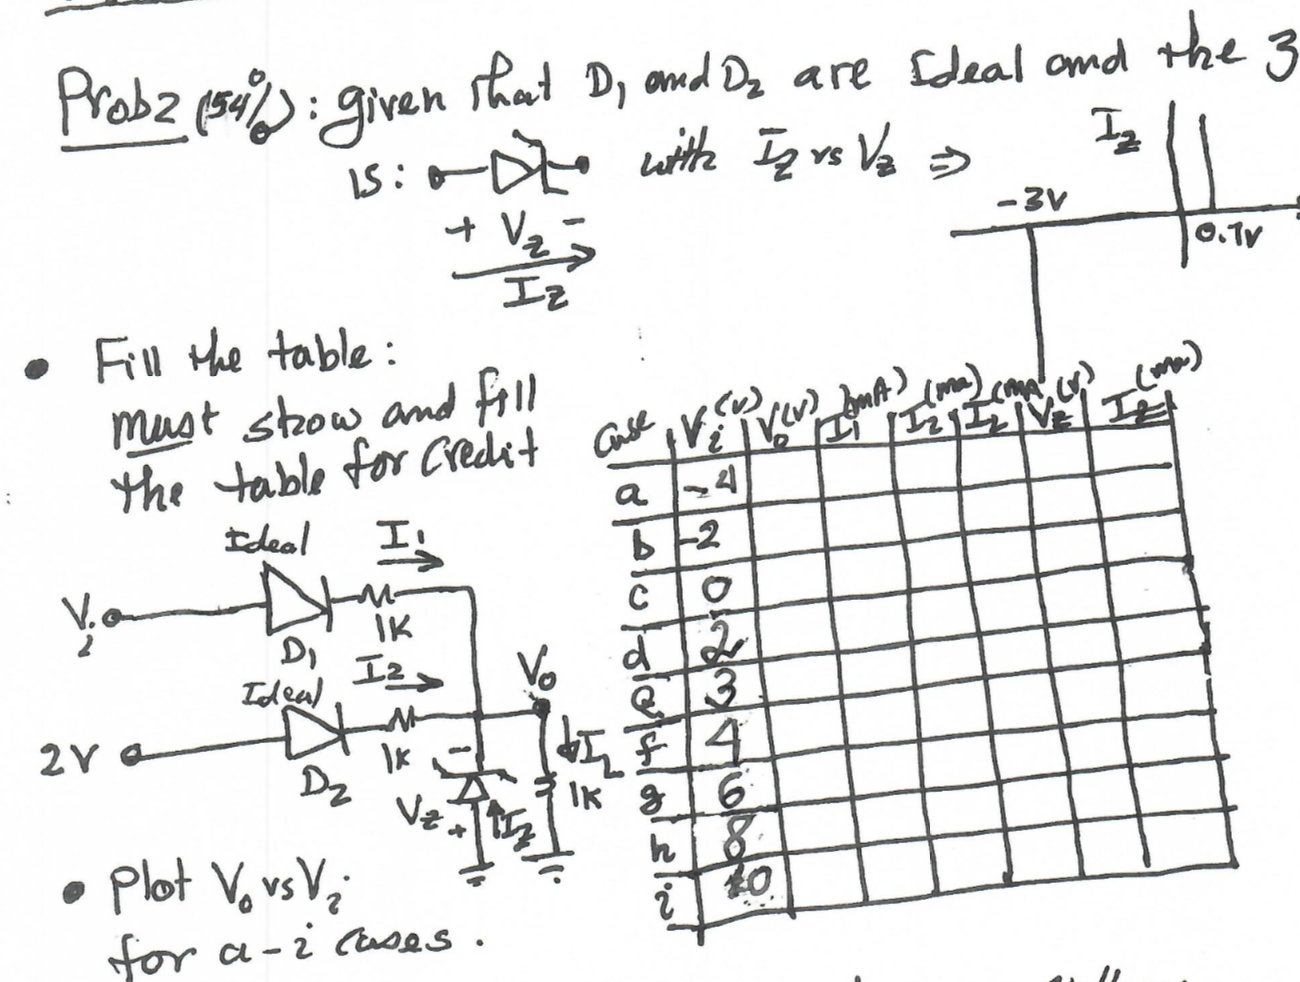 Prob2 (54%): given that D₁ and D₂ are Ideal and the 3
is: with I_Z vs V_Z ⇒ I_Z
-3V
0.7V
+ V_Z -
I_Z
• Fill the table:
must show and fill
the table for credit
case V_i(v) V_o(v) I_1(mA) I_2(ma) I_L(mA) V_Z(v) I_Z(ma)
a -4
b -2
c 0
d 2
e 3
f 4
g 6
h 8
i 10
Ideal I₁
V_i
D₁ 1K
Ideal I₂
V_o
2V
D₂ 1K
- I_L
1K
V_Z + I_Z
• Plot V_o vs V_i
for a-i cases.